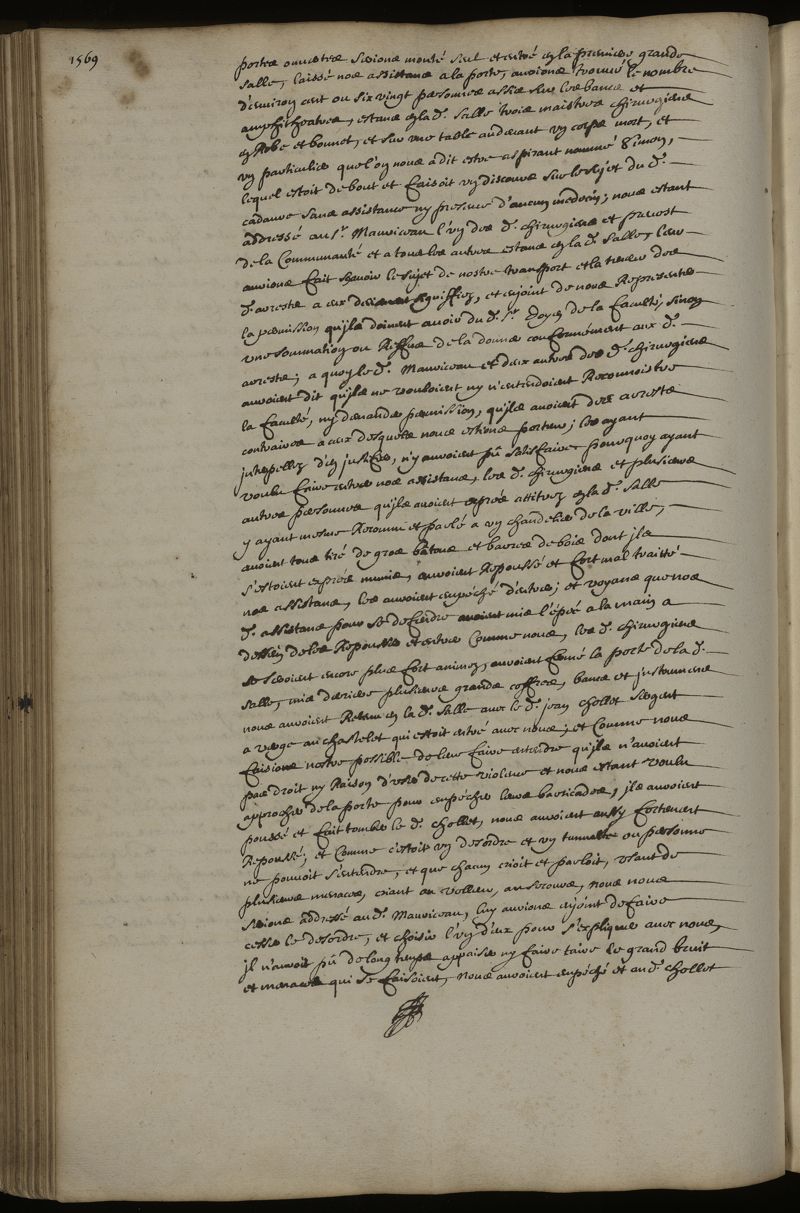 1569
portes ouvertes serions monté seul et entré en la premiere grande
salle, laissé nos assistans a la porte, aurions trouvé le nombre
d'environ cent ou six vingt personnes assis sur les bancs et
amphitheatres, estans en lad. salle trois maistres chirurgiens
en Robe et bonnet, et sur une table audevant un corps mort, et
un particulier que l'on nous a dit estre aspirant nommé Simon,
lequel estoit debout et faisoit un discours sur le sujet du d.
cadavre sans assistance ny presence d'aucun medecin; nous estant
addressé au Sr. Mauriceau l'un des d. chirurgiens et prevost
de la Communauté et a tous les autres estans en la d. Salle, leur
aurions fait sçavoir le sujet de nostre transport et la teneur des
d. arrests a eux signiffiez, et enjoint de nous Representer
la permission qu'ils doivent avoir du d. Sr. Doyen de la Faculté, sinon
une sommation ou Reffus de la donner conformément aux d.
arrests; a quoy le d. Mauriceau et deux autres des d. chirurgiens
auroient dit qu'ils ne vouloient ny n'entendoient Reconnoistre
la Faculté, ny demander permission, qu'ils avoient des arrests
contraires a ceux desquels nous estions porteur; les ayant
interpellez d'en justifier, n'y auroient pû satisfaire; pourquoy ayant
voulu faire entrer nos assistans, les d. chirurgiens et plusieurs
autres personnes qu'ils avoient exprés attirez en la d. Salle
y ayant mesme Reconnu et parlé a un chandelier de la ville,
auroient tous tiré de gros bâtons et barres de bois dont ils
s'estoient exprés munis, auroient Repoussé et fort mal traitté
nos assistans, les auroient empéché d'entrer; et voyans que nos
d. assistans pour se deffendre avoient mis l'épée a la main a
dessein de les Repousser et entrer Comme nous, les d. chirurgiens
se seroient encore plus fort animez, auroient fermé la porte de la d.
salle, mis derriere plusieurs grands coffres, bancs et justamens
nous auroient Retenu en la d. salle avec le d. jean Chollet Sergent
a verge au chastelet qui estoit entré avec nous; et Comme nous
faisions nostre possible de leur faire entendre qu'ils n'avoient
pas droit ny Raison d'user de cette violence et nous estant voulu
approcher de la porte pour empécher leurs barricades, ils auroient
poussé et fait tomber le d. Chollet, nous auroient aussy fortement
Repoussé; et Comme c'estoit un desordre et un tumulte ou personne
ne pouvoit s'entendre, et que chacun crioit et parloit, usant de
plusieurs menaces, criant au volleur, au secours, nous nous
serions addressé au d. Mauriceau, luy aurions enjoint de faire
cesser le desordre, et choisir l'un d'eux pour s'expliquer avec nous,
il n'auroit pû de long temps appaiser ny faire taire le grand bruit
et menaces qui se faisoient, Nous auroient empéché et au d. Chollet